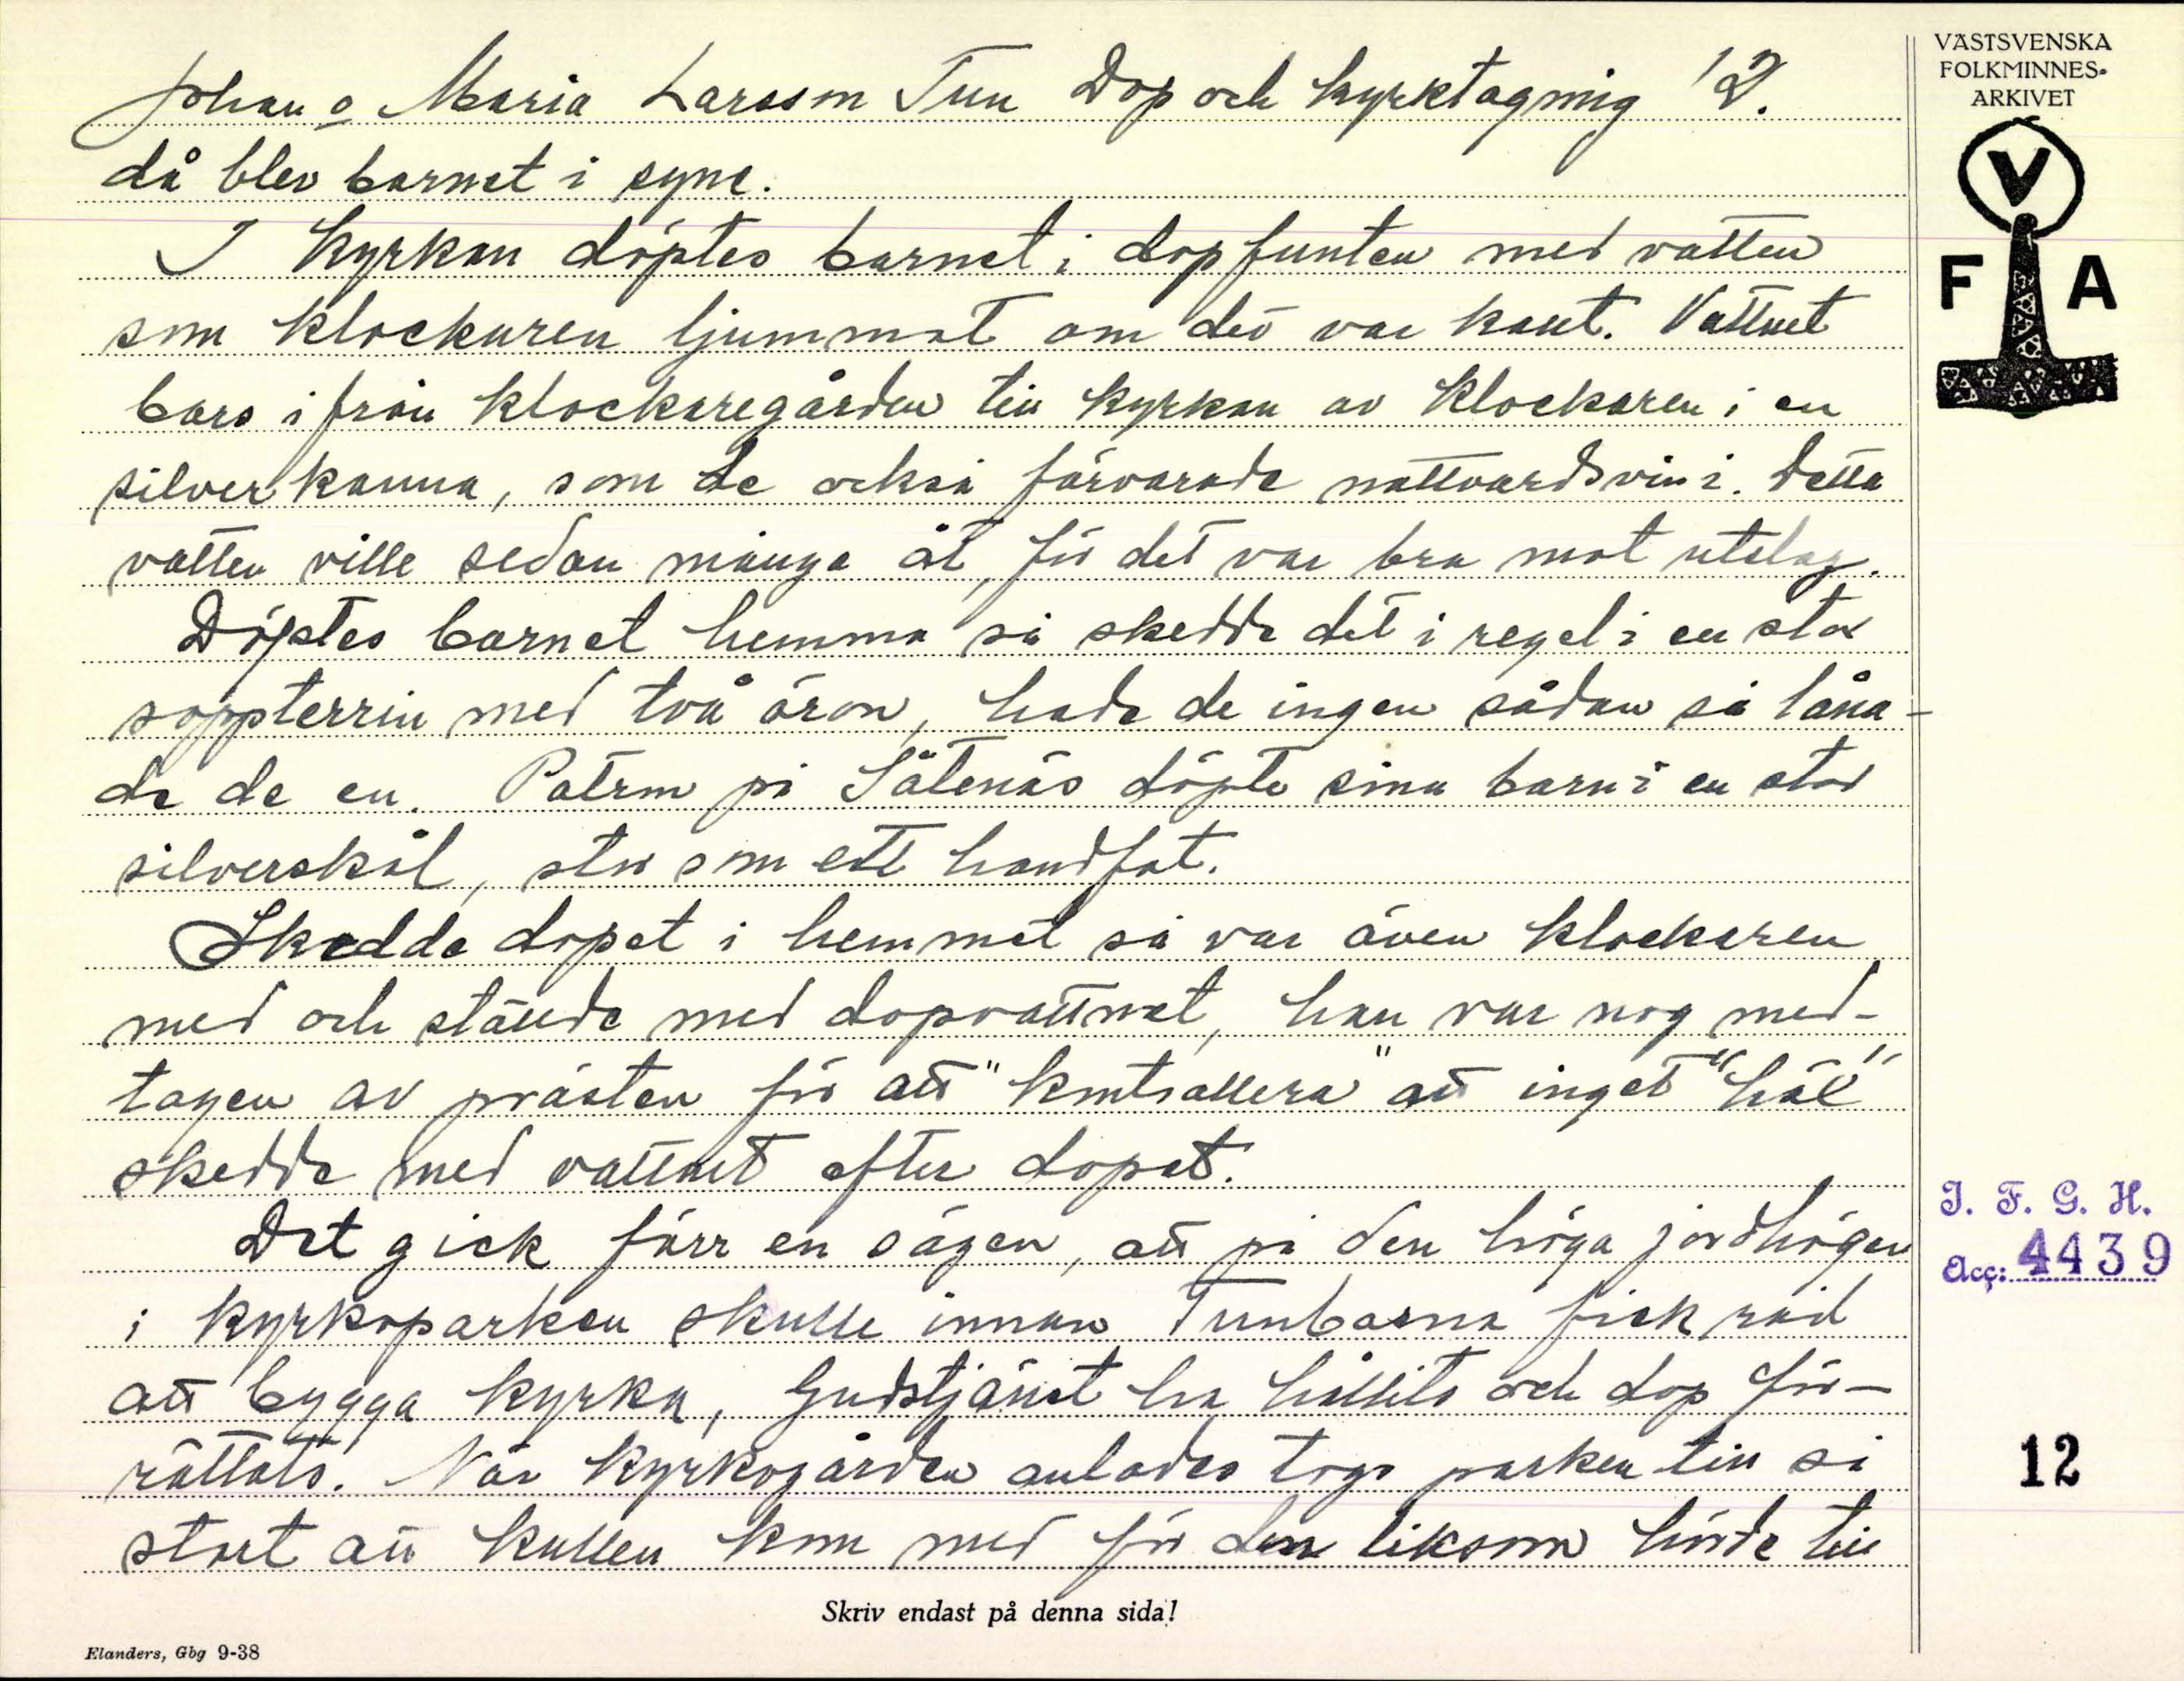 Johan o Maria Larsson Tun Dop och kyrktagning 12.
då blev barnet i syne.
I kyrkan döptes barnet i dopfunten med vatten
som klockaren ljummat om det var kallt. Vattnet
bars ifrån klockaregården till kyrkan av klockaren i en
silverkanna, som de också förvarade nattvardsvin i. Detta
vatten ville sedan många åt, för det var bra mot utslag.
Döptes barnet hemma så skedde det i regel i en stor
soppterrin med två öron, hade de ingen sådan så låna-
de de en. Patron på Såtenäs döpte sina barn i en stor
silverskål, stor som ett handfat.
Skedde dopet i hemmet så var även klockaren
med och stående med dopvattnet, han var nog med-
tagen av prästen för att "kontrollera" att inget "hål"
skedde med vattnet efter dopet.
Det gick förr en sägen, att på den höga jordhögen
i kyrkoparken skulle innan Tunborna fick råd
att bygga kyrka, Gudstjänst ha hållits och dop för-
rättats. När kyrkogården anlades togs parken till så
stort att kullen kom med för den liksom hörde till
Skriv endast på denna sida!
Elanders, Gbg 9-38
VÄSTSVENSKA
FOLKMINNES-
ARKIVET
V
F A
I. F. G. H.
Acc: 4439
12